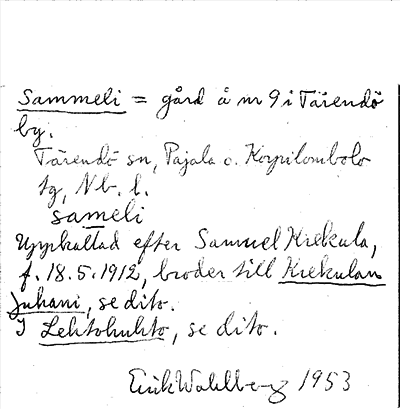 Sammeli = gård å nr 9 i Tärendö
by.
Tärendö sn, Pajala o. Korpilombolo
tg, Nb. l.
sameli
Uppkallad efter Samuel Krekula,
f. 18.5.1912, broder till Krekulan
Juhani, se dito.
I Lehtohuhto, se dito.
Erik Wahlberg 1953